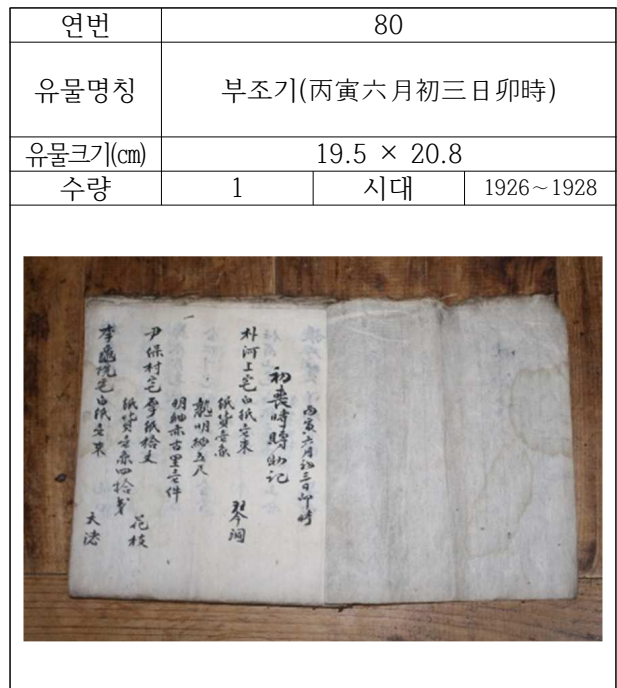 연번 80
유물명칭 부조기(丙寅六月初三日卯時)
유물크기(㎝) 19.5 × 20.8
수량 1 시대 1926~1928
丙寅六月初三日卯時
初喪時賻助記
朴河上宅白紙壹束
紙貨壹
明紬五尺
明紬赤古里壹件
尹保村宅 紙拾丈
紙貨壹 四拾
花枝
李 宅白紙壹束
大